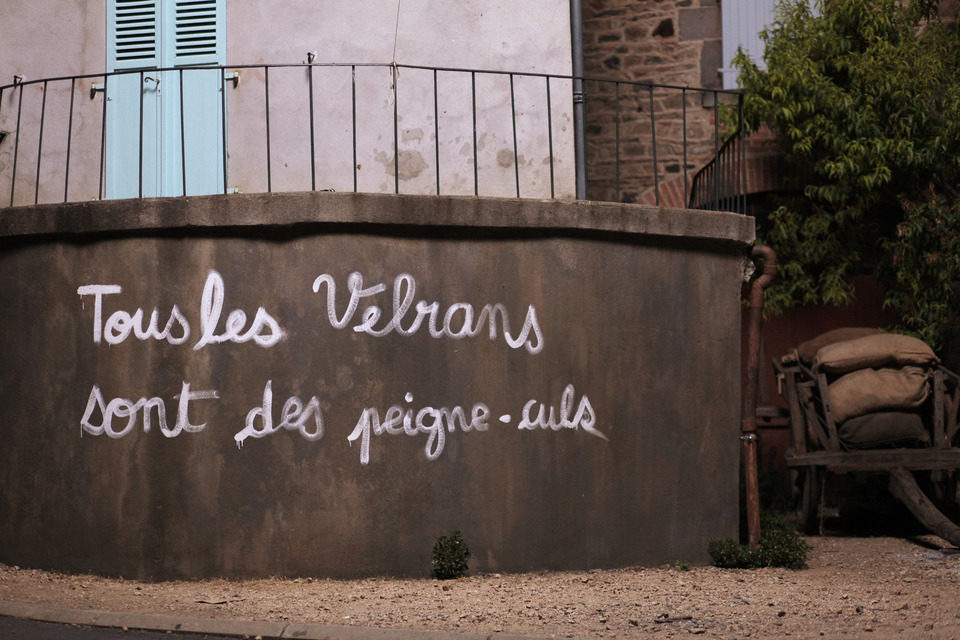 Tous les Velrans
sont des peigne-culs